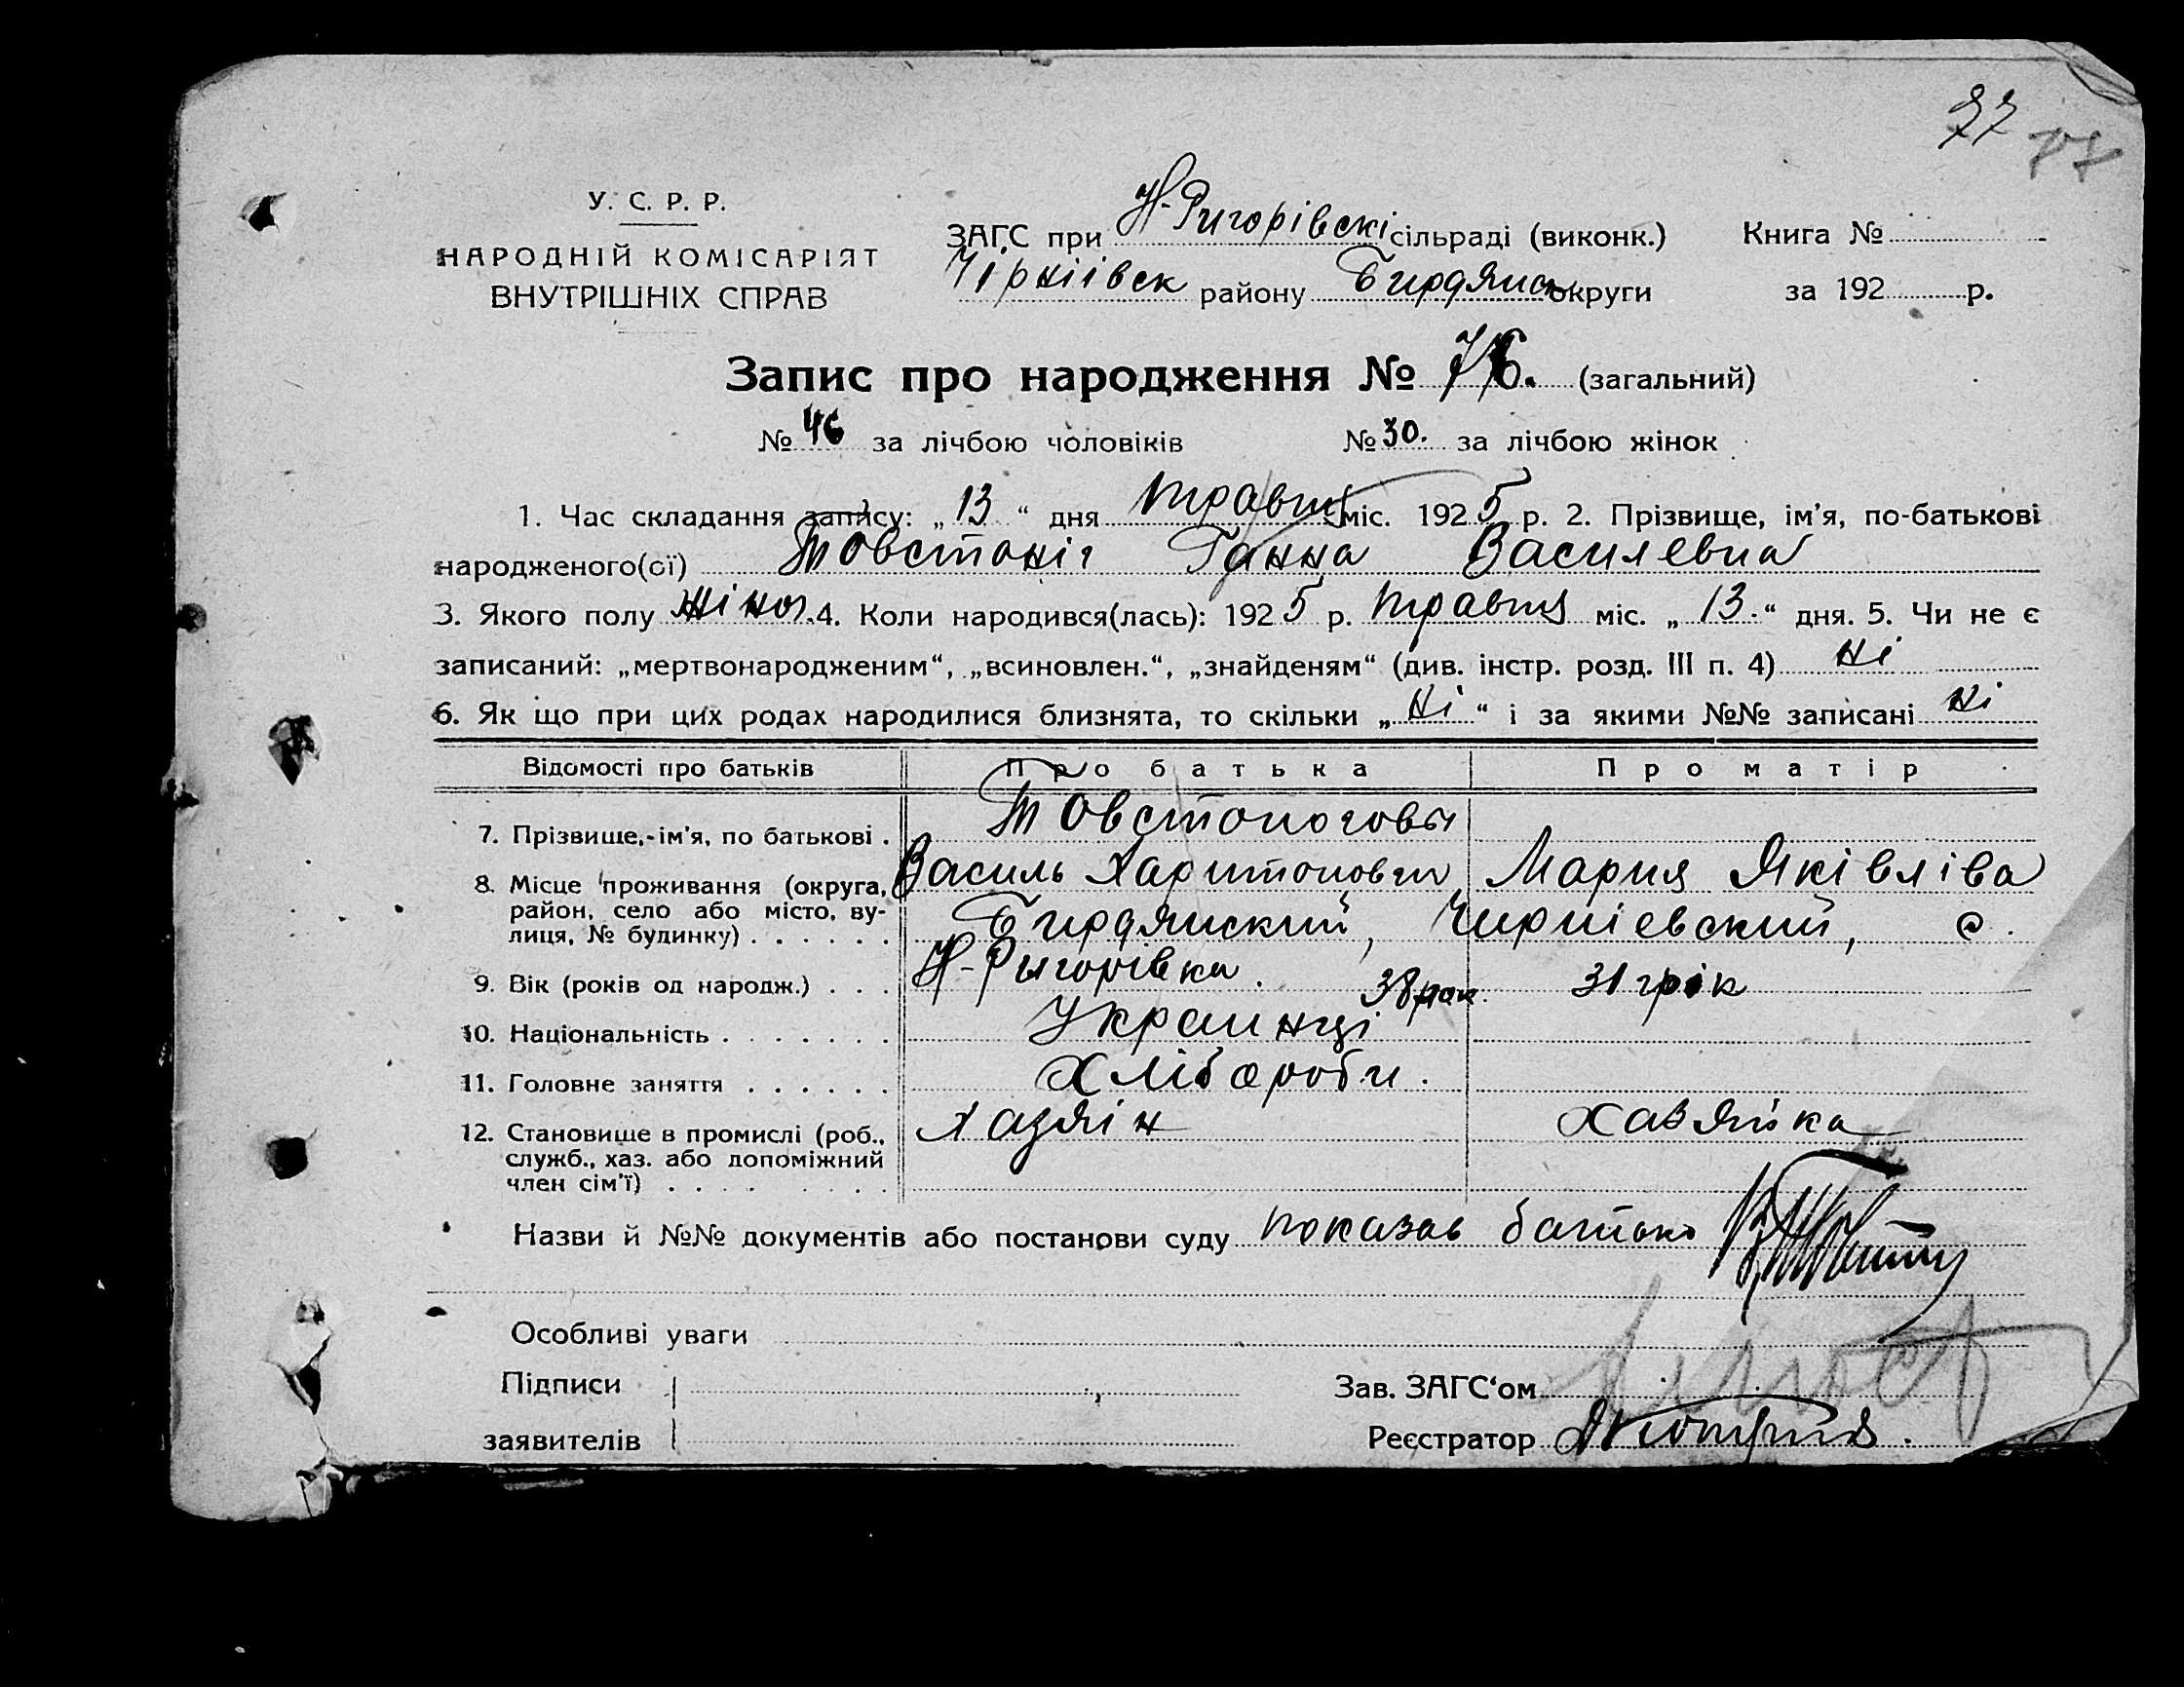 77 77
У. С. Р. Р.
НАРОДНІЙ КОМІСАРІЯТ
ВНУТРІШНІХ СПРАВ
ЗАГС при Н-Ригорівскі сільраді (виконк.) Книга №
Чірніівск району Бирдянск округи за 192 р.
Запис про народження № 76. (загальний)
№ 46 за лічбою чоловіків № 30. за лічбою жінок
1. Час складання запису: „ 13 “ дня травня міс. 1925 р. 2. Прізвище, ім’я, по-батькові
народженого(ої) Товстоніг Ганна Василевна
3. Якого полу жіноч. 4. Коли народився(лась): 1925 р. травня міс. „ 13. “ дня. 5. Чи не є
записаний: „мертвонародженим“, „всиновлен.“, „знайденям“ (див. інстр. розд. III п. 4) ні
6. Як що при цих родах народилися близнята, то скільки „ ні “ і за якими №№ записані ні
Відомості про батьків Про батька Про матір
7. Прізвище, ім’я, по батькові . Товстоногови
Василь Харитонович Мария Яківліва
8. Місце проживання (округа,
район, село або місто, ву-
лиця, № будинку) . . . . . . Бирдянский, Чирніевский, с.
Н-Ригорівка.
9. Вік (років од народж.) . . . 38 рок. 31 рік
10. Національність . . . . . . . Украинці
11. Головне заняття . . . . . . Хлібороби.
12. Становище в промислі (роб.,
служб., хаз. або допоміжний
член сім’ї) . . . . . . . Хазяін Хазяйка
Назви й №№ документів або постанови суду показав батько
Особливі уваги
Підписи
заявителів
Зав. ЗАГС‘ом
Реєстратор